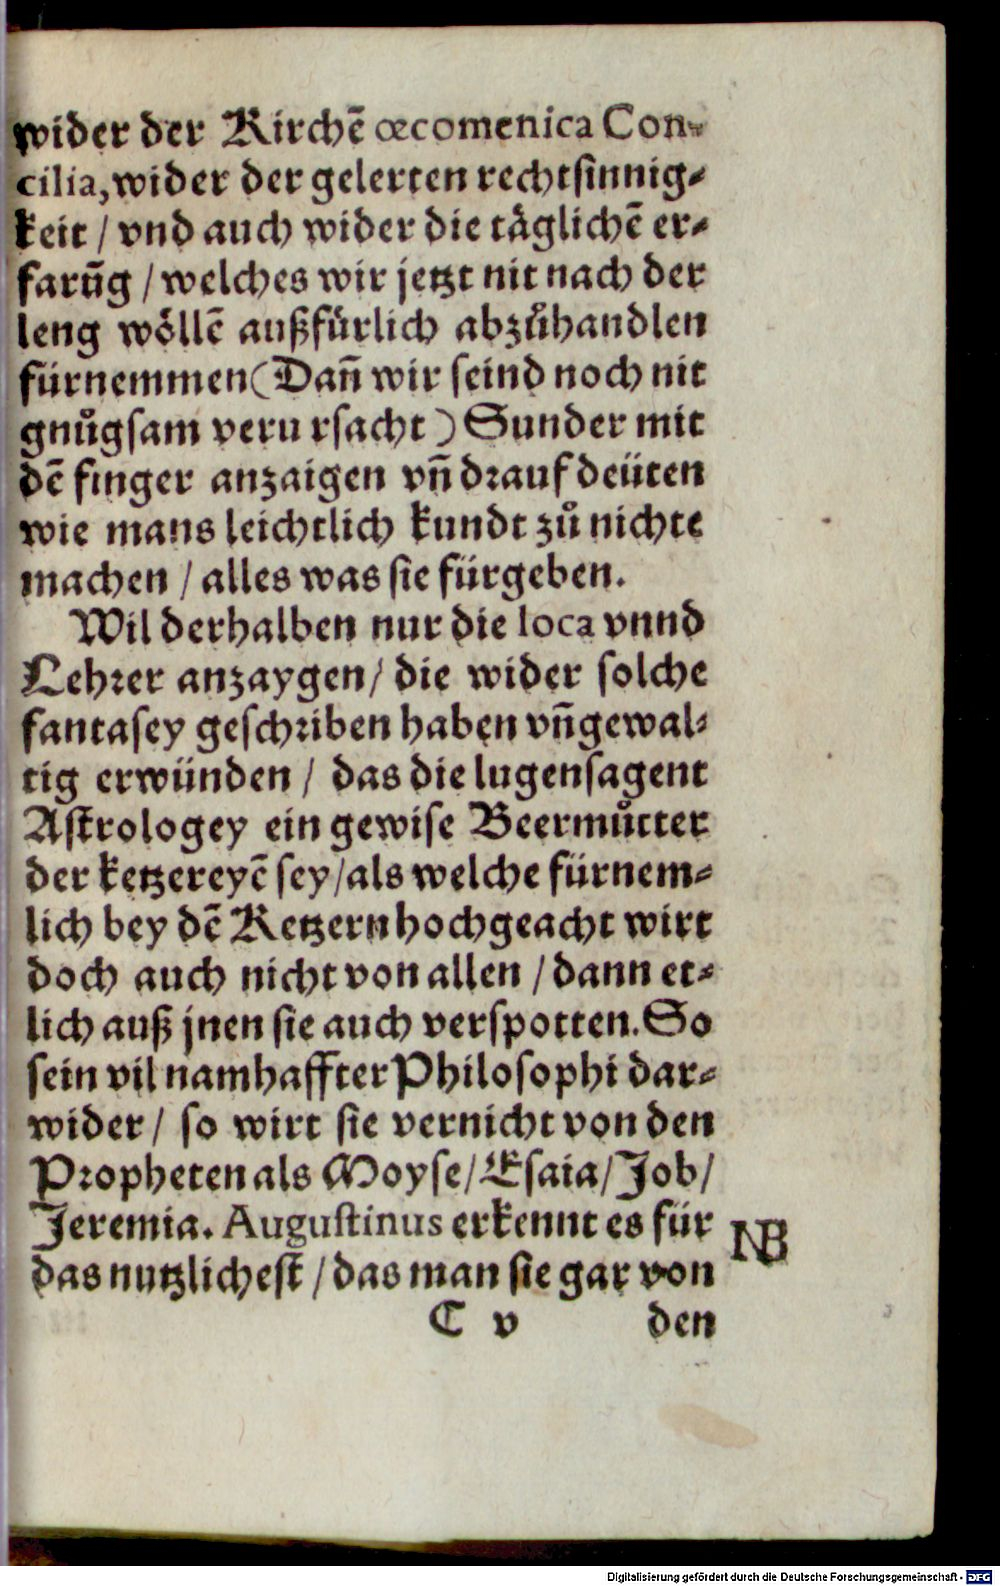 wider der Kirchē œcomenica Con⸗
cilia, wider der gelerten rechtsinnig⸗
keit / vnd auch wider die täglichē er⸗
farūg / welches wir jetzt nit nach der
leng wöllē außfürlich abzůhandlen
fürnemmen (Dañ wir seind noch nit
gnůgsam veru rsacht) Sunder mit
dē finger anzaigen vñ drauf deüten
wie mans leichtlich kundt zů nichte
machen / alles was sie fürgeben.
Wil derhalben nur die loca vnnd
Lehrer anzaygen / die wider solche
fantasey geschriben haben vñ gewal⸗
tig erwünden / das die lugensagent
Astrologey ein gewise Beermůtter
der ketzereyē sey / als welche fürnem⸗
lich bey dē Ketzern hochgeacht wirt
doch auch nicht von allen / dann et⸗
lich auß jnen sie auch verspotten. So
sein vil namhaffter Philosophi dar⸗
wider / so wirt sie vernicht von den
Propheten als Moyse / Esaia / Job /
Jeremia. Augustinus erkennt es für
das nutzlichest / das man sie gar von
NB
C v den
Digitalisierung gefördert durch die Deutsche Forschungsgemeinschaft - DFG